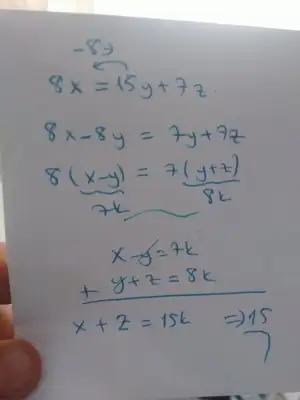 -8y
8x = 15y + 7z
8x - 8y = 7y + 7z
8(x-y) = 7(y+z)
7k 8k
x - y = 7k
+ y + z = 8k
x + z = 15k ⇒ 15